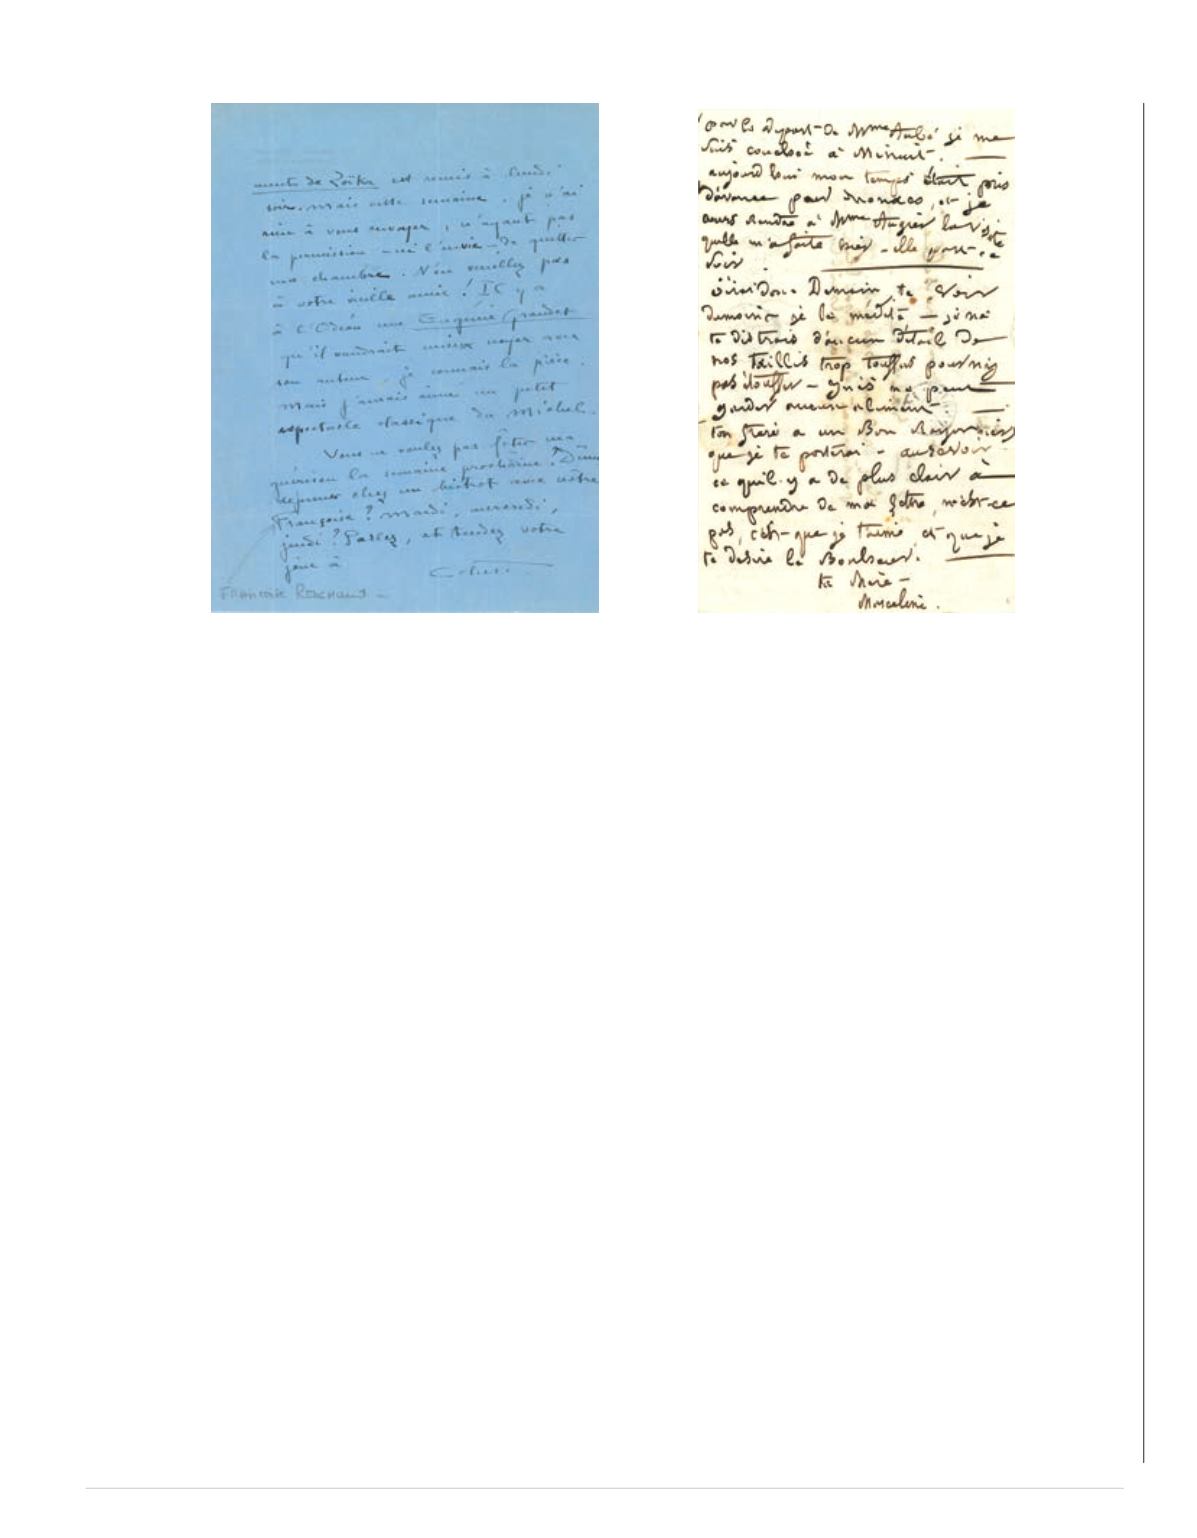 est remis à lundi
soir. Mais cette semaine, je n'ai
rien à vous envoyer, n'ayant pas
la permission – ni l'envie – de quitter
ma chambre. N'en veuillez pas
à votre vieille amie ! Il y a
à l'Odéon une Eugénie Grandet
qu'il vaudrait mieux
son auteur, je connais la pièce.
Mais j'aurais aimé un petit
spectacle classique du Michel.
Vous ne voulez pas fêter ma
guérison la semaine prochaine ?
déjeuner chez un bistrot avec votre
Françoise ? Mardi, mercredi,
jeudi ? Parlez, et tendez votre
joue à
Colette
FRANÇOISE
pour le départ de Mme je me
suis couchée à Minuit.
aujourd'hui mon temps était pris
d'avance pour, et je
rendre à Mme Augier la visite
qu'elle m'a faite hier – elle part ce
soir
Demain te voir
du moins je le médite – je ne
te distrais d'aucun détail de
nos taillis trop touffus pour n'y
pas étouffer – mais ne peut
garder aucun aliment.
ton frère a un Bon
que je te porterai – au revoir
ce qu'il y a de plus clair à
comprendre de ma lettre, n'est-ce
pas, c'est que je t'aime, et que je
te désire le Bonheur.
ta Mère –
Marceline.